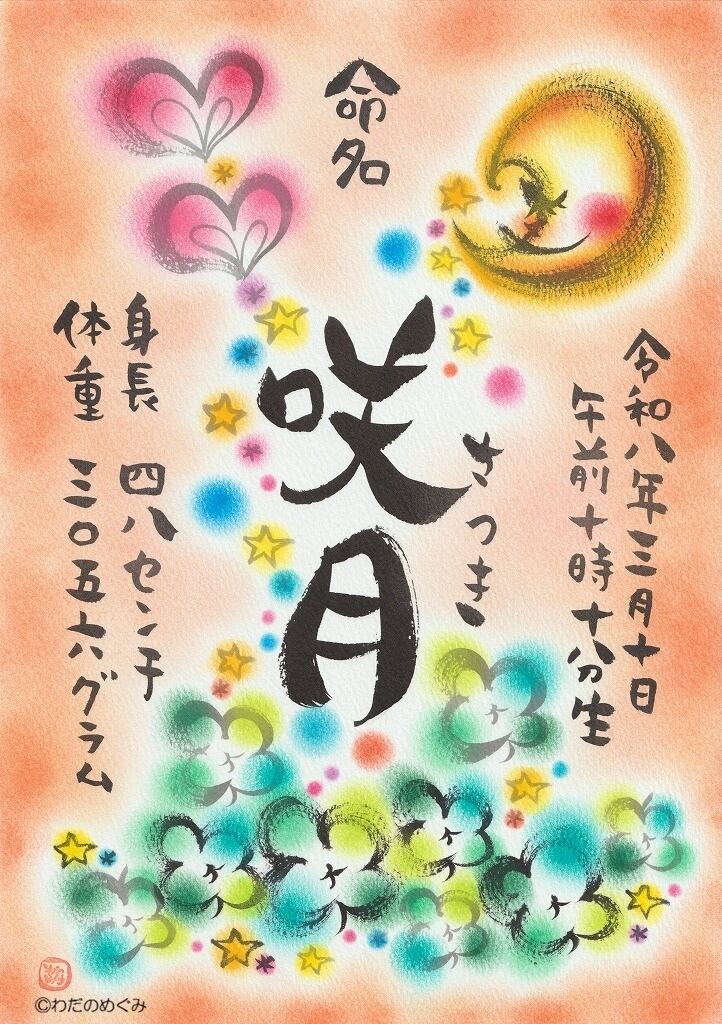 命名
令和八年三月十日
午前十時十八分生
咲月
さつき
身長 四八センチ
体重 三〇五六グラム
©わだのめぐみ